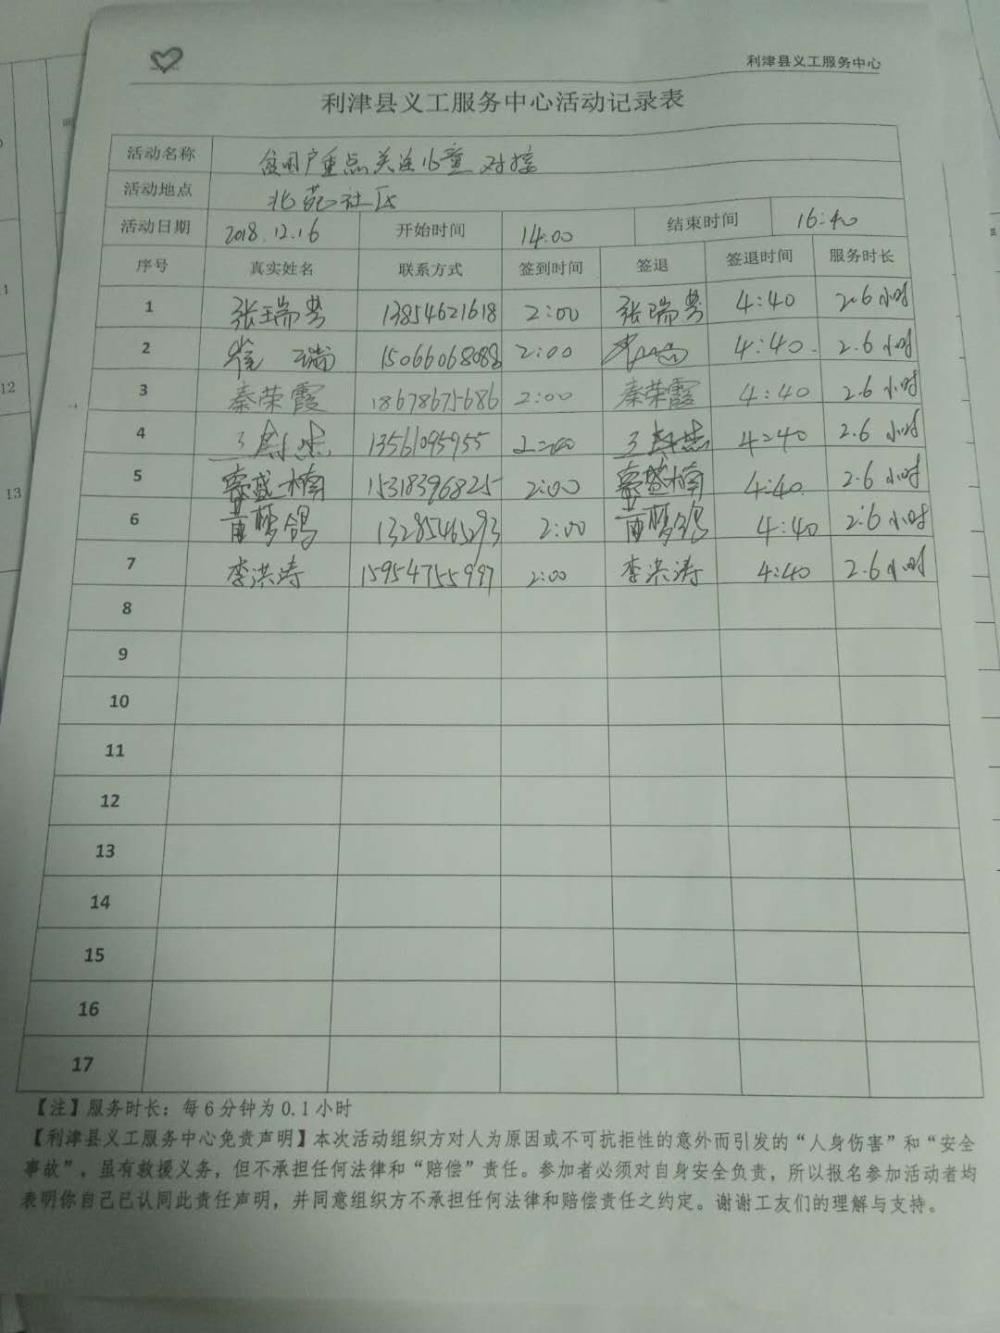 利津县义工服务中心
利津县义工服务中心活动记录表
活动名称 贫困户重点关注儿童对接
活动地点 北苑社区
活动日期 2018.12.16 开始时间 14:00 结束时间 16:40
序号 真实姓名 联系方式 签到时间 签退 签退时间 服务时长
1 张瑞芳 13854621618 2:00 张瑞芳 4:40 2.6小时
2 崔瑞 15066068088 2:00 4:40 2.6小时
3 秦荣霞 18678675686 2:00 秦荣霞 4:40 2.6小时
4 13561095955 2:00 4:40 2.6小时
5 15318396825 2:00 4:40 2.6小时
6 黄梦鸽 13285465293 2:00 黄梦鸽 4:40 2.6小时
7 李洪涛 15954755997 2:00 李洪涛 4:40 2.6小时
8
9
10
11
12
13
14
15
16
17
【注】服务时长：每6分钟为0.1小时
【利津县义工服务中心免责声明】本次活动组织方对人为原因或不可抗拒性的意外而引发的“人身伤害”和“安全
事故”，虽有救援义务，但不承担任何法律和“赔偿”责任。参加者必须对自身安全负责，所以报名参加活动者均
表明你自己已认同此责任声明，并同意组织方不承担任何法律和赔偿责任之约定。谢谢工友们的理解与支持。